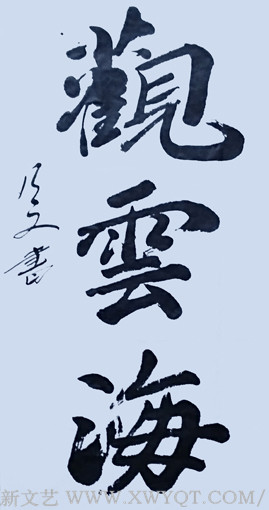 觀雲海
文書
新文艺 WWW.XWYQT.COM/